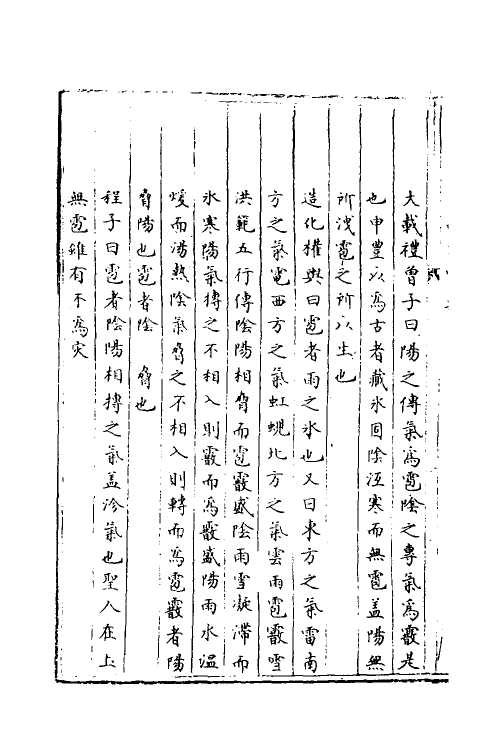 大載禮曾子曰陽之傳氣爲雹陰之專氣爲霰是
也申豊以爲古者藏氷固陰沍寒而無雹盖陽無
所洩雹之所以生也
造化權輿曰雹者雨之氷也又曰東方之氣雷南
方之氣電西方之氣虹蜺北方之氣雲雨雹霰雪
洪範五行傳陰陽相脅而雹霰盛陰雨雪凝滯而
氷寒陽氣搏之不相入則霰而爲霰盛陽雨水温
煖而湯熱陰氣脅之不相入則轉而爲雹霰者陽
脅陽也雹者陰 脅也
程子曰雹者陰陽相搏之氣盖沴氣也聖人在上
無雹雖有不爲灾